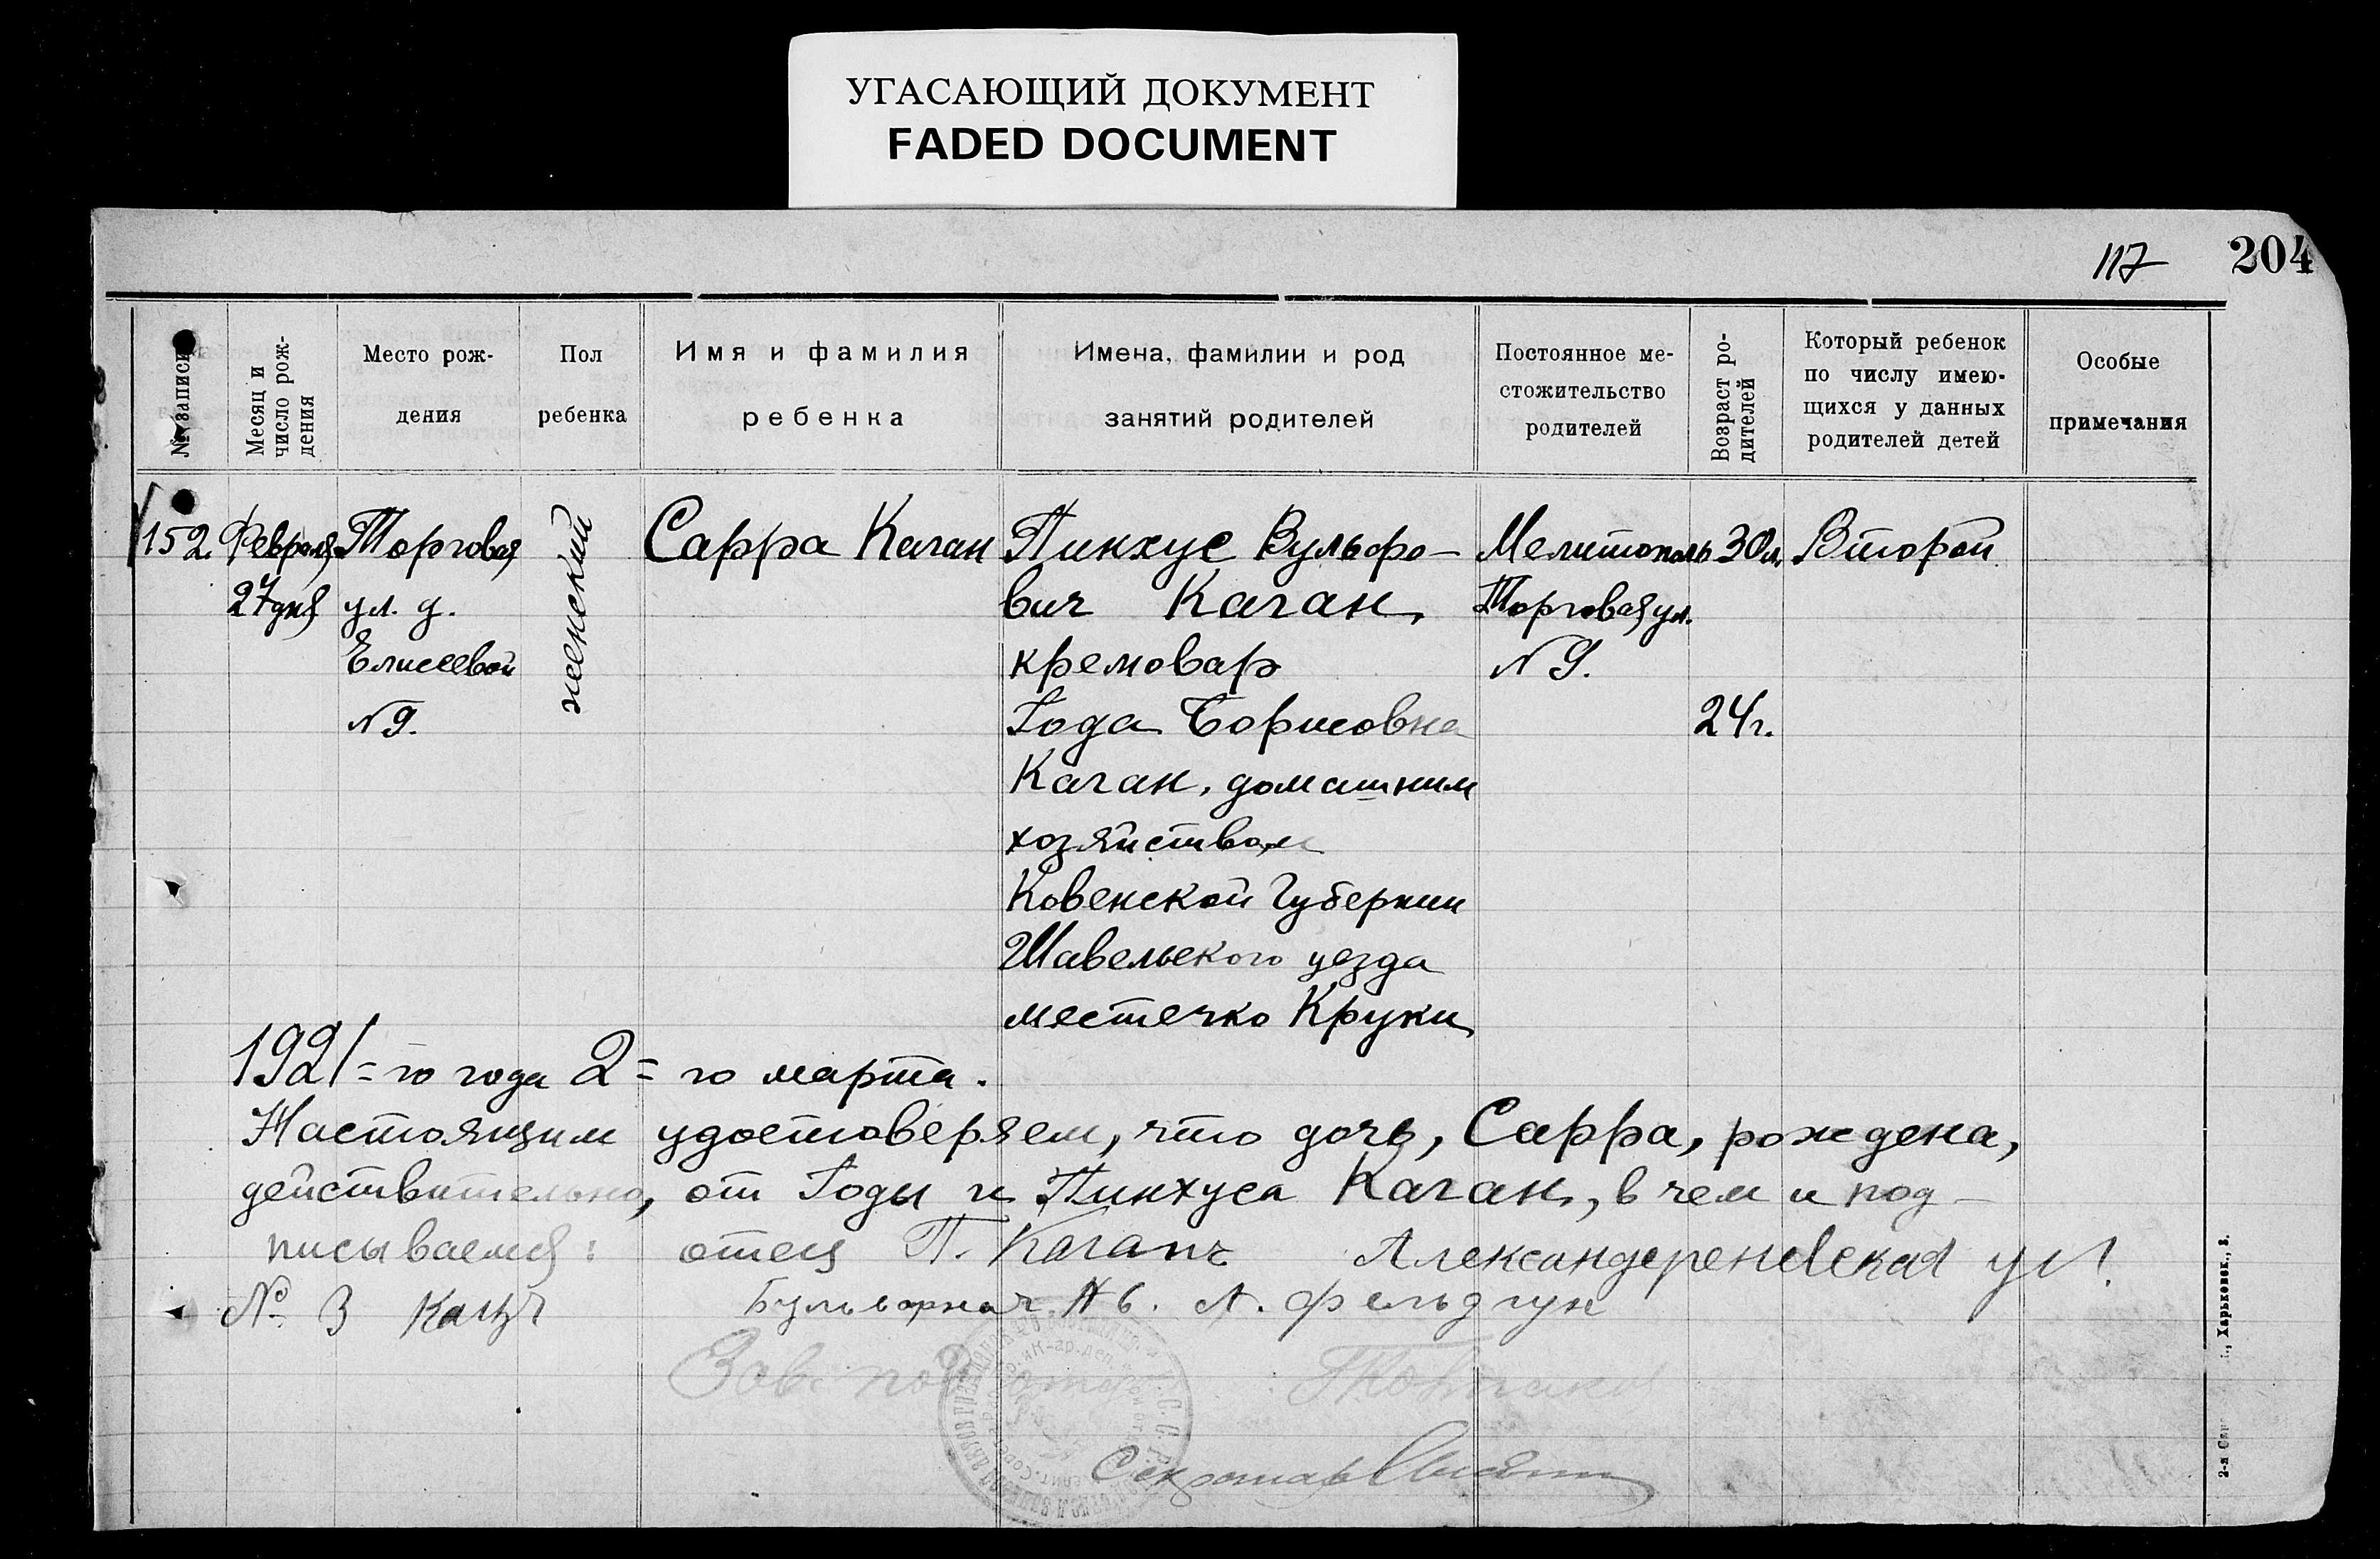 УГАСАЮЩИЙ ДОКУМЕНТ
FADED DOCUMENT
117 204
№ записи
Месяц и
число рож-
дения
Место рож-
дения
Пол
ребенка
Имя и фамилия
ребенка
Имена, фамилии и род
занятий родителей
Постоянное ме-
стожительство
родителей
Возраст ро-
дителей
Который ребенок
по числу имею-
щихся у данных
родителей детей
Особые
примечания
152.
Февраля
27 дня
Торговая
ул. д.
Елисеевой
N 9.
женский
Сарра Каган
Пинхус Вульфо-
вич Каган,
кремовар
Года Борисовна
Каган, домашним
хозяйством
Ковенской Губернии
Шавельского уезда
местечко Круки
Мелитополь
Торговая ул.
N 9.
30 л.
24 г.
Второй
1921=го года 2=го марта.
Настоящим удостоверяем, что дочь, Сарра, рождена,
действительно, от Годы и Пинхуса Каган, в чем и под-
писываемся: отец П. Каганъ ул.
№ 3 Кацъ Бульварная N 6. А. Фельдгун
Зав. под
Секретарь
Харьковск., 3.
2-я